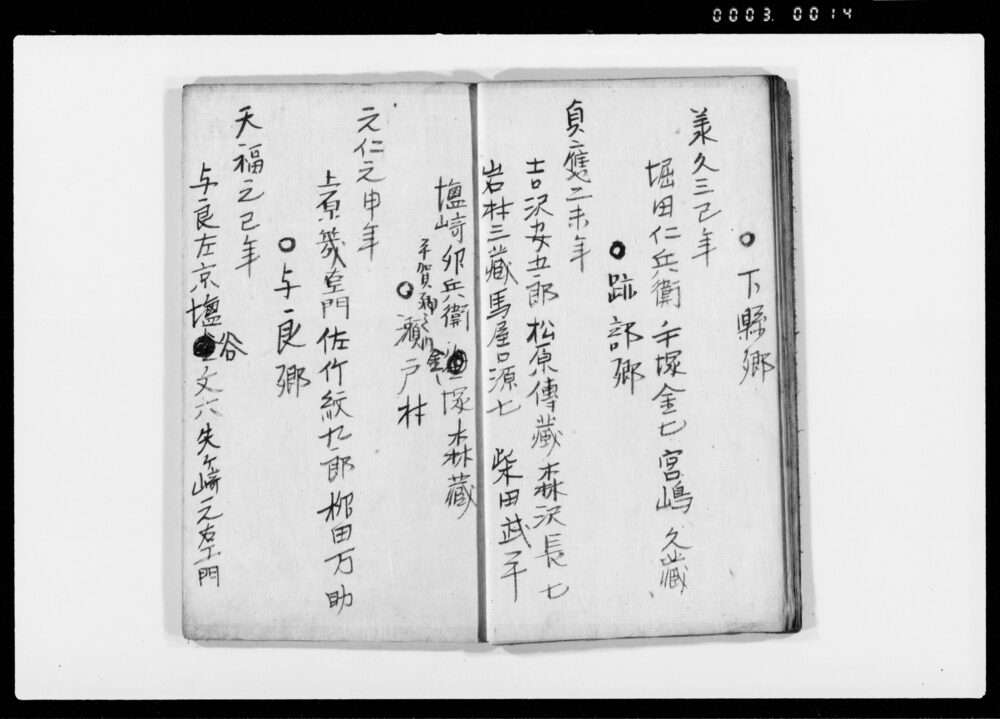 0003. 0014
○下縣郷
美久三己年
堀田仁兵衛 手塚金七 宮嶋久藏
○跡部郷
貞應二未年
吉沢安五郎 松原傳藏 森沢長七
岩村三藏 馬屋口源七 柴田武平
塩崎卯兵衛 塚森藏
平賀
○瀬戸村
元仁元申年
上原義左門 佐竹紋九郎 柳田万助
○与良郷
天福元己年
与良左京 塩谷文六 矢ヶ崎元右エ門